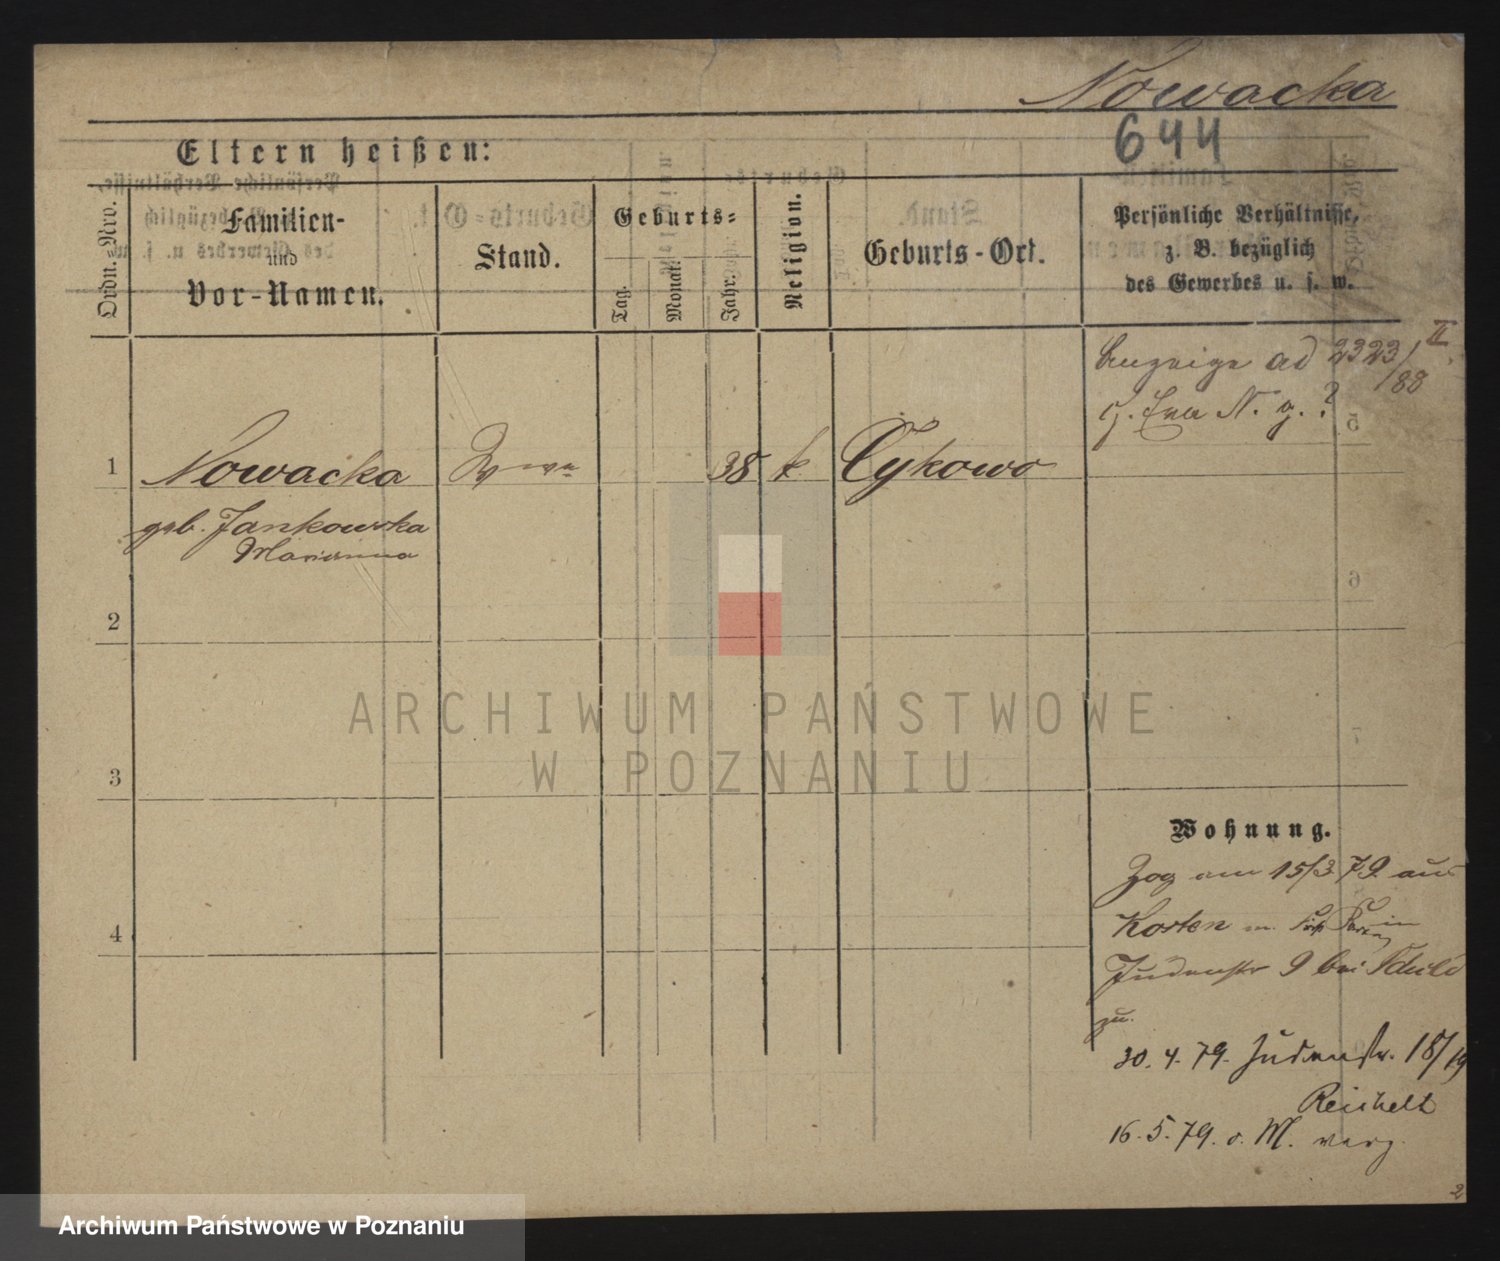 Nowacka
644
Eltern heißen:
Ordn.-Nro.
Familien-
und
Vor-Namen.
Stand.
Geburts-
Tag.
Monat.
Jahr.
Religion.
Geburts-Ort.
Persönliche Verhältnisse,
z. B. bezüglich
des Gewerbes u. s. w.
ad 2323/88 II
N. g. ?
1 Nowacka Wwe 38 k Cykowo
geb. Jankowska
Marianna
2
3
4
Wohnung.
Zog am 15/3 79 aus
Kosten
Judenstr 9 bei
zu.
30. 4. 79. Judenstr. 18/19
Reichelt
16. 5. 79. o. M. verz.
2
ARCHIWUM PAŃSTWOWE
W POZNANIU
Archiwum Państwowe w Poznaniu